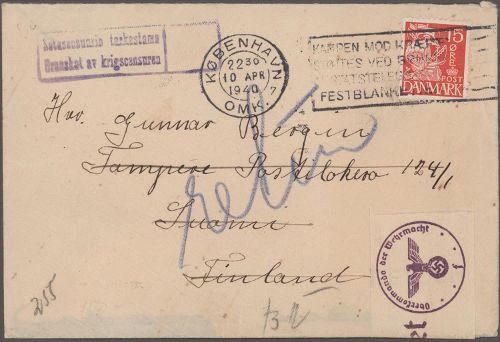 Sotasensurin tarkastama
Granskat av krigscensuren
KØBENHAVN
2230
10 APR
1940
7
OMK.
KAMPEN MOD KRÆFT
STØTTES VED BRUG
STATSTELEG
FESTBLANK
15
ØRE
POST
DANMARK
Hrr. Gunnar Bergin
Tampere Postilokero 124/1
Suomi
Finland
retur
Oberkommando der Wehrmacht
f
et
255
B2